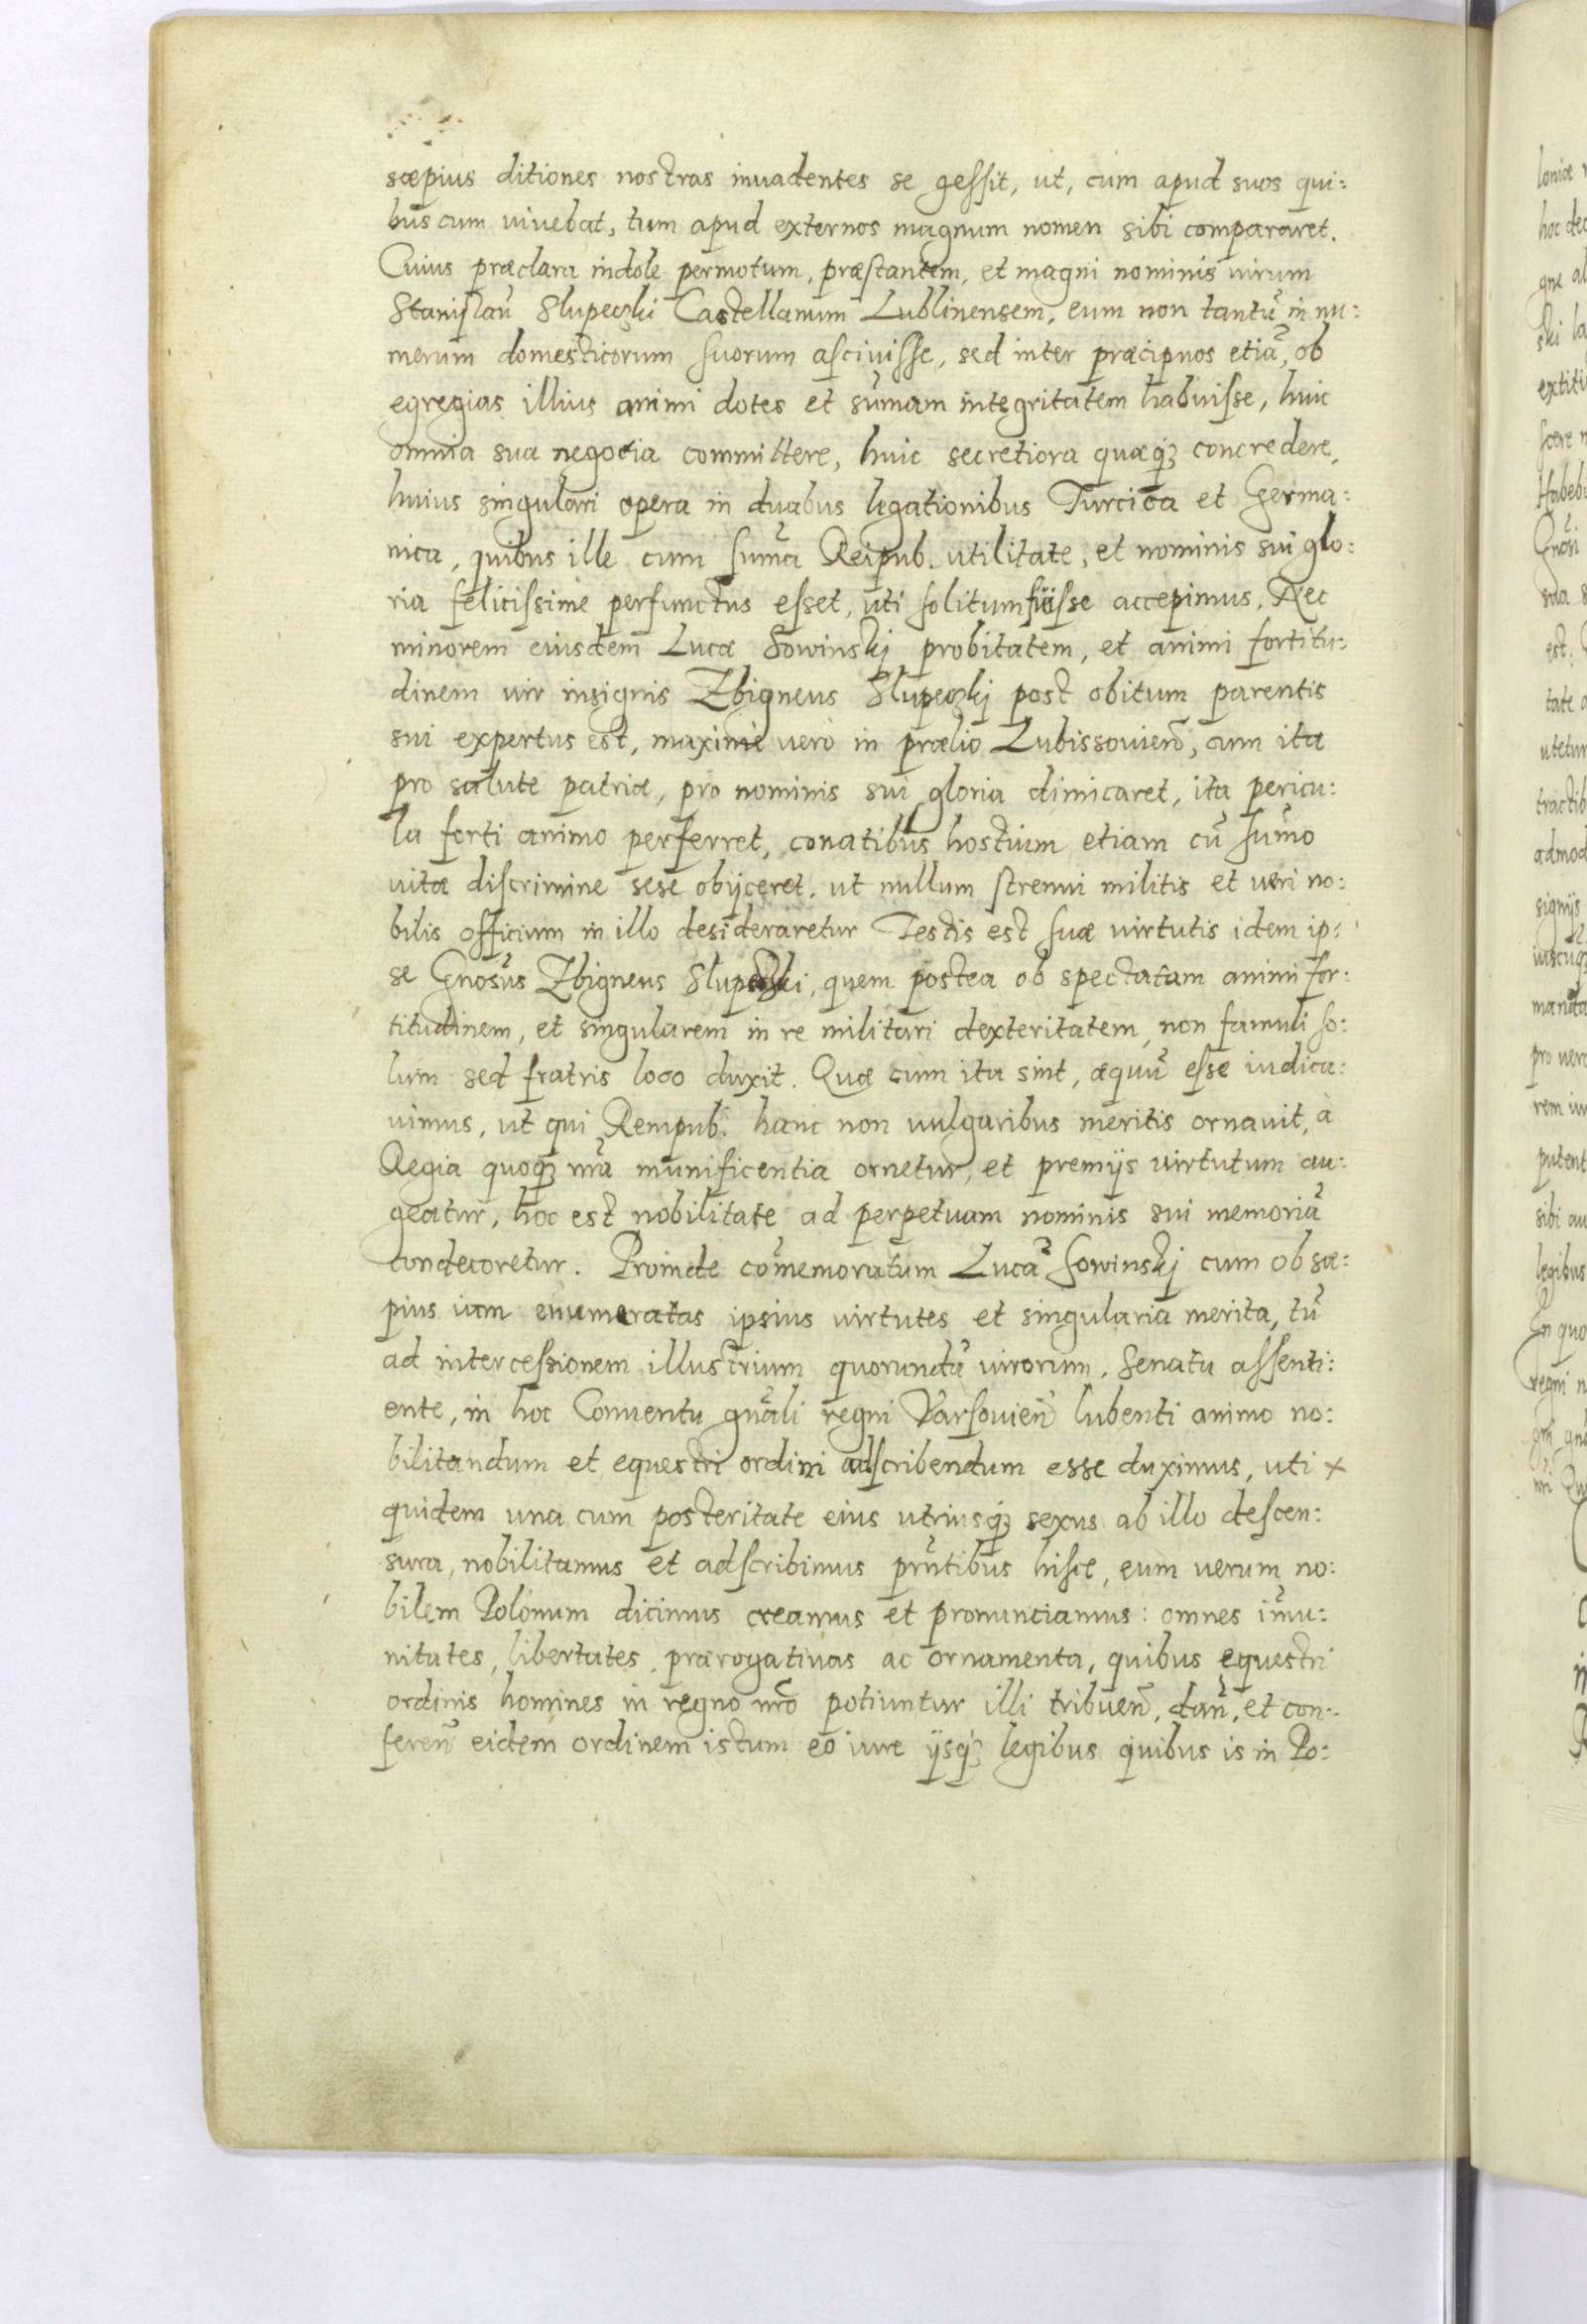 sæpius ditiones nostras inuadentes se gessit, ut, cum apud suos qui:
bus cum viuebat, tum apud externos magnum nomen sibi compararet.
Cuius præclara indole permotum, præstantem, et magni nominis virum
Stanislaũ Slupeczki Castellanum Lublinensem, eum non tantũ in nu:
merum domesticorum suorum asciuisse, sed inter præcipuos etiã, ob
egregias illius animi dotes et sum̃am integritatem habuisse, huic
omnia sua negocia committere, huic secretiora quæq3 concredere,
huius singulari opera in duabus legationibus Turcica et Germa:
nica, quibus ille cum sum̃a Reipub. utilitate, et nominis sui glo:
ria felicissime perfunctus esset, uti solitum fuisse accepimus. Nec
minorem eiusdem Lucæ Sowinskj probitatem, et animi fortitu:
dinem vir insignis Zbigneus Slupeczkj post obitum parentis
sui expertus est, maxime vero in prælio Lubissouien̄, cum ita
pro salute patriæ, pro nominis sui gloria dimicaret, ita pericu:
la forti animo perferret, conatibus hostium etiam cũ sum̃o
vitæ discrimine sese obijceret. ut nullum strenui militis et veri no:
bilis officium in illo desideraretur Testis est suæ virtutis idem ip:
se Gnosus Zbigneus Slupeczki, quem postea ob spectatam animi for:
titudinem, et singularem in re militari dexteritatem, non famuli so:
lum sed fratris loco duxit. Quæ cum ita sint, æquũ esse iudica:
uimus, ut qui Rempub. hanc non vulgaribus meritis ornauit, à
Regia quoq3 nrã munificentia ornetur, et premijs virtutum au:
geatur, hoc est nobilitate ad perpetuam nominis sui memoriã
condecoretur. Proinde com̃emoratum Lucã Sowinskj cum ob sæ:
pius iam enumeratas ipsius virtutes et singularia merita, tũ
ad intercessionem illustrium quorundã virorum, Senatu assenti:
ente, in hoc Conuentu gnãli regni Varsouien̄ lubenti animo no:
bilitandum et equestri ordini adscribendum esse duximus, uti x
quidem una cum posteritate eius utriusq3 sexus ab illo descen:
sura, nobilitamus et adscribimus prñtibus hisce, eum verum no:
bilem Polonum dicimus creamus et pronunciamus: omnes im̃u:
nitates, libertates, prærogatiuas ac ornamenta, quibus equestri
ordinis homines in regno nrõ potiuntur illi tribuen̄, dan̄, et con:
feren̄ eidem ordinem istum eo iure ijsq3 legibus quibus is in Po: